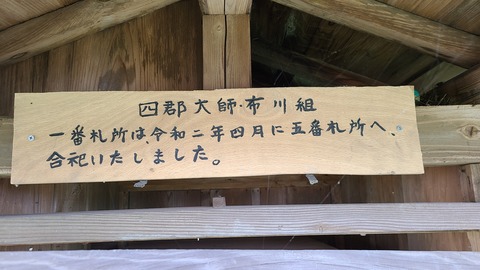 四郡大師・布川組
一番札所は、令和二年四月に五番札所へ、
合祀いたしました。